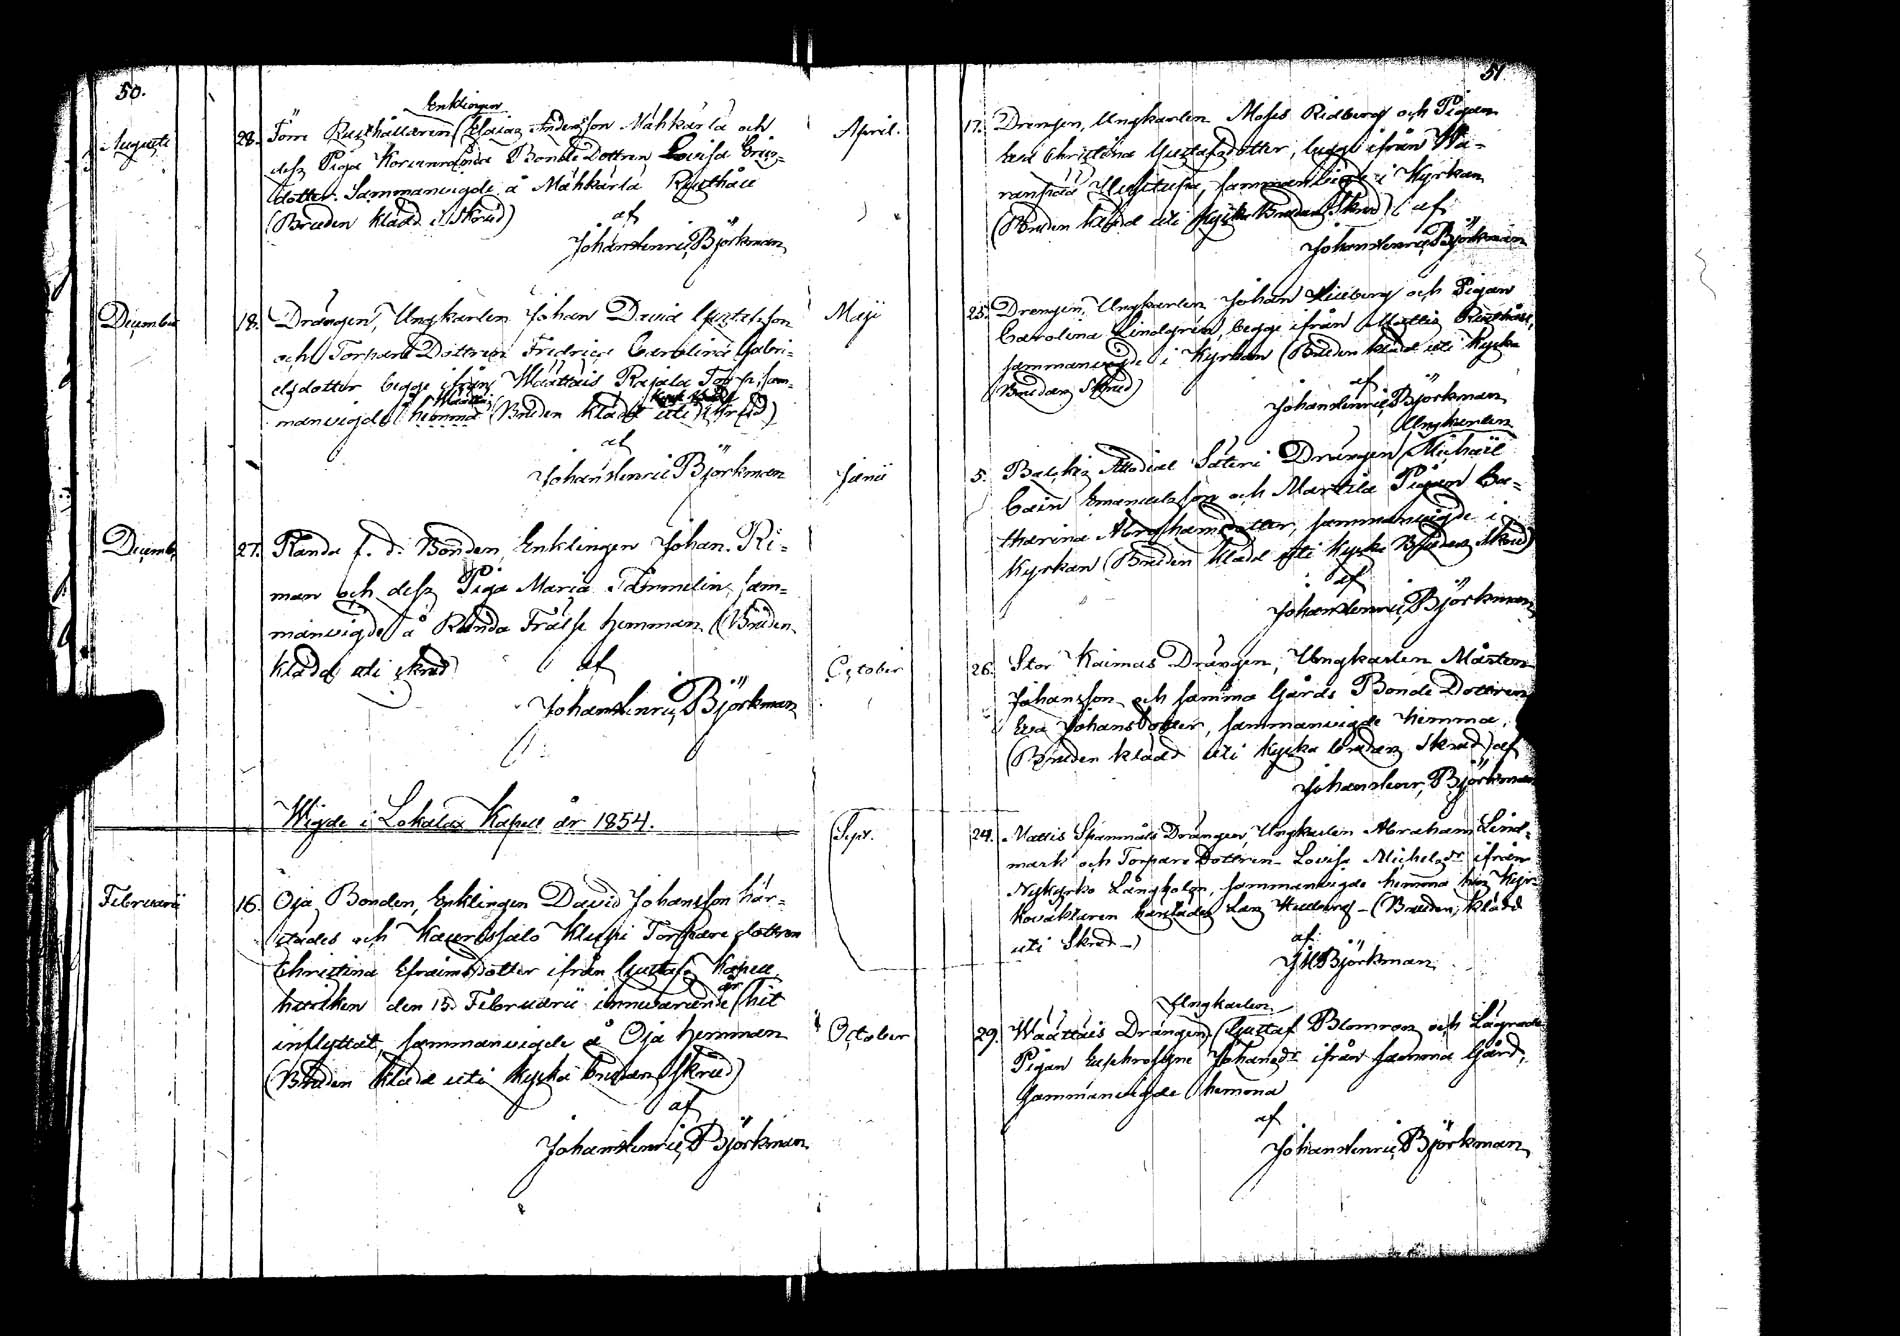 50.
Enklingen
Augusti 28. Töre Rusthållaren Esaias Andersson Mahkarla och
dess Piga Bonde Dottren Lovisa Erics=
dotter. Sammanvigde å Mahkarla Rusthåll
(Bruden klädd i Skrud) af
Johan Henric Björkman
December 18. Drängen, Ungkarlen Johan David Gustafsson
och Torpare Dottren Fredrica Carolina Gabri=
elsdotter begge ifrån Wäättäis Rajala Torp, sam=
manvigde hemma (Bruden klädd uti Skrud)
af
Johan Henric Björkman
Decemb. 27. Randa f. d. Bonden, Enklingen Johan Ri=
man och dess Piga Maria Tammelin, sam=
manvigde å Randa Frälse hemman (Bruden
klädd uti skrud) af
Johan Henric Björkman
Wigde i Lokalax Kapell år 1854.
Februarii 16. Oja Bonden, Enklingen David Johansson här=
städes och Kaurissalo Kluppi Torpare dottren
Christina Efraimsdotter ifrån Gustafs Kapell,
hvilken den 15 Februarii innevarande år hit
inflyttat, sammanvigde å Oja hemman
(Bruden klädd uti Kyrko brudan Skrud)
af
Johan Henric Björkman
51
April. 17. Drengen, Ungkarlen Moses Ridberg och Pigan
Eva Christina Gustafsdotter, begge ifrån Wa=
sammanvigde i Kyrkan
(Bruden klädd uti Kyrko Brudan Skrud) af
Johan Henric Björkman
Maji 25. Drengen, Ungkarlen Johan och Pigan
Carolina Lindgren, begge ifrån Mattis Rusthåll,
sammanvigde i Kyrkan (Bruden klädd uti Kyrko
Brudan Skrud) af
Johan Henric Björkman
Ungkarlen
Junii 5. Allodial Säteri Drängen Michaël
Cain Emanuelsson och Marttila Pigan Ca=
tharina Abrahamsdotter, sammanvigde i
Kyrkan (Bruden klädd uti Kyrko Brudan Skrud)
af
Johan Henric Björkman
October 26. Stor Kaimas Drängen, Ungkarlen Mårten
Johansson och samma Gårds Bonde Dottren
Eva Johansdotter, sammanvigde hemma,
(Bruden klädd uti Kyrko brudan Skrud) af
Johan Henr. Björkman
Sept. 24. Mattis Spannåls Drängen, Ungkarlen Abraham Lind=
mark och Torpare Dottren Lovisa Michelsdr ifrån
Nykyrko Långholm, sammanvigde hemma hos Kyr=
kovaktaren (Bruden, klädd
uti Skrud-) af
J H Björkman
Ungkarlen
October 29. Wäättäis Drängen Gustaf Blomroos och
Pigan Euphrosyne Johansdr ifrån samma Gård,
sammanvigde hemma
af
Johan Henric Björkman